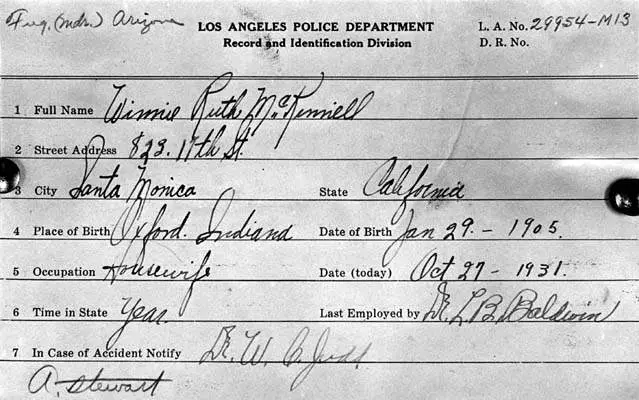 Fug. (Mdr.) Arizona
LOS ANGELES POLICE DEPARTMENT
Record and Identification Division
L. A. No. 29954-M13
D. R. No.
1 Full Name Winnie Ruth McKinnell
2 Street Address 823. 17th St.
3 City Santa Monica State California
4 Place of Birth Oxford. Indiana Date of Birth Jan 29. - 1905.
5 Occupation Housewife Date (today) Oct 27 - 1931.
6 Time in State Year. Last Employed by Dr. L. B. Baldwin
7 In Case of Accident Notify Dr. W. C. Judd
A. Stewart